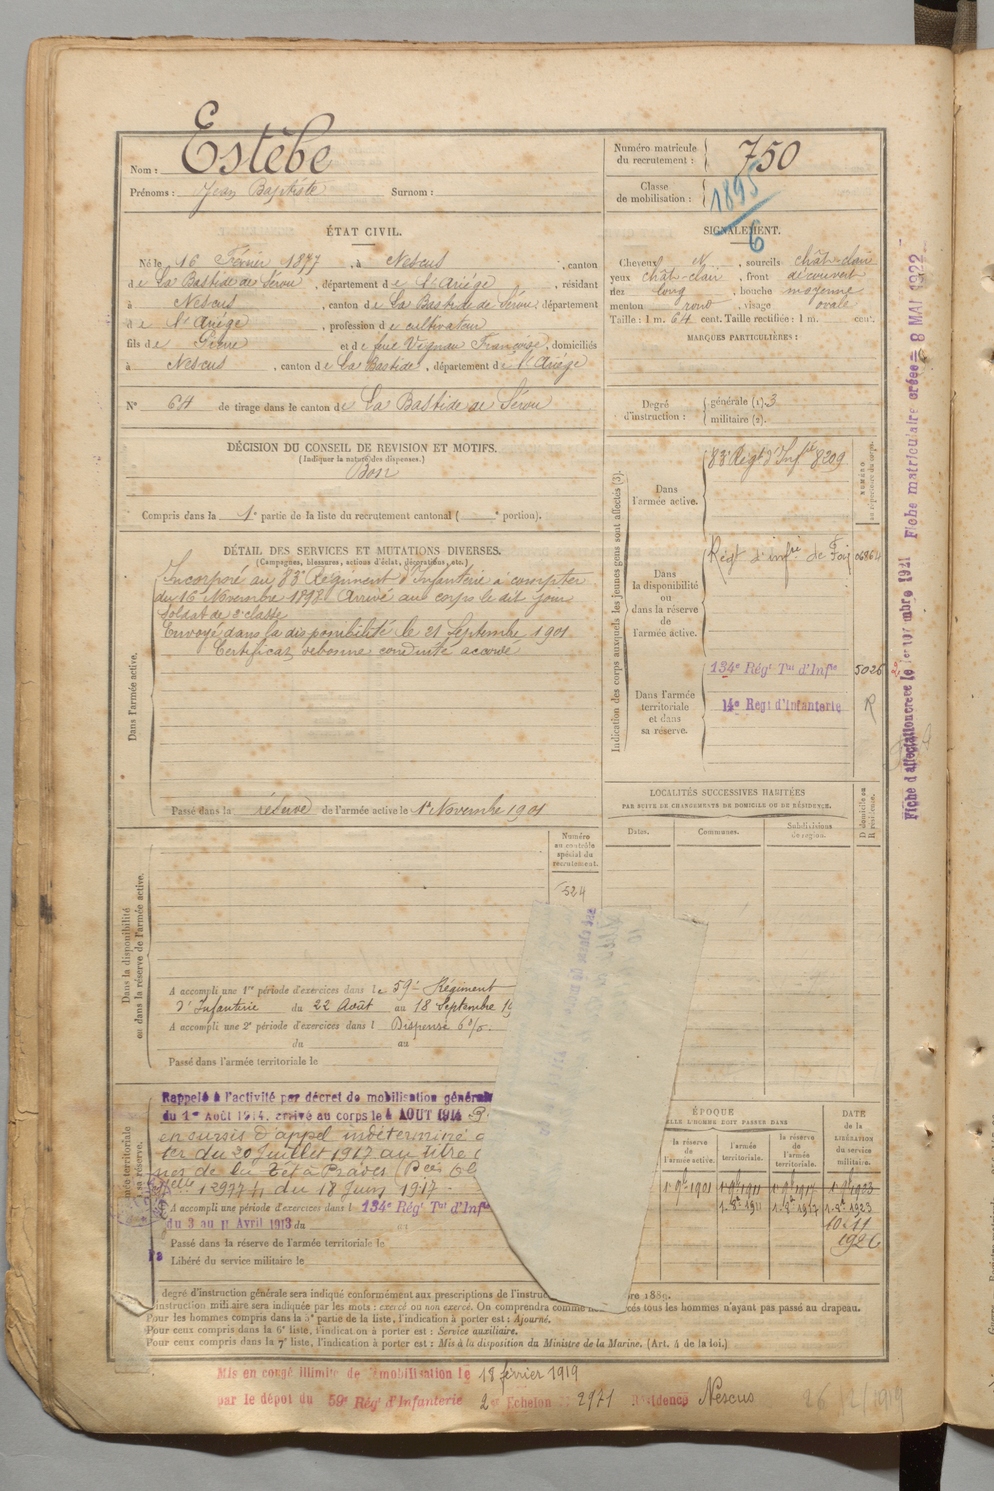 Nom : Estèbe
Prénoms : Jean Baptiste Surnom :
Numéro matricule du recrutement : 750
Classe de mobilisation : 1895
6
ÉTAT CIVIL.
Né le 16 Février 1877, à Nescus, canton
de La Bastide de Sérou, département de l'Ariége, résidant
à Nescus, canton de La Bastide de Sérou, département
de l'Ariége, profession de cultivateur
fils de Pierre et de feue Vignau Françoise, domiciliés
à Nescus, canton de La Bastide, département de l'Ariége
N° 64 de tirage dans le canton de La Bastide de Sérou
SIGNALEMENT.
Cheveux N, sourcils chât-clair
yeux chât-clair, front découvert
nez long, bouche moyenne
menton rond, visage ovale
Taille : 1 m. 64 cent. Taille rectifiée : 1 m. cent.
MARQUES PARTICULIÈRES :
Degré d'instruction : générale (1). 3
militaire (2).
DÉCISION DU CONSEIL DE REVISION ET MOTIFS.
(Indiquer la nature des dispenses.)
Bon
Compris dans la 1e partie de la liste du recrutement cantonal ( e portion).
DÉTAIL DES SERVICES ET MUTATIONS DIVERSES.
(Campagnes, blessures, actions d'éclat, décorations, etc.)
Dans l'armée active.
Incorporé au 83e Régiment d'Infanterie à compter
du 16 Novembre 1898. Arrivé au corps le dit jour
Soldat de 2e classe
Envoyé dans la disponibilité le 21 Septembre 1901.
Certificat de bonne conduite accordé
Passé dans la réserve de l'armée active le 1er Novembre 1901
Indication des corps auxquels les jeunes gens sont affectés (3).
NUMÉRO au répertoire du corps.
Dans l'armée active.
83e Régt d'Infrie 8209
Dans la disponibilité ou dans la réserve de l'armée active.
Régt d'infrie de Foix 06864
Dans l'armée territoriale et dans sa réserve.
134e Régt Tal d'Infie 5026
14e Régt d'Infanterie R
LOCALITÉS SUCCESSIVES HABITÉES
PAR SUITE DE CHANGEMENTS DE DOMICILE OU DE RÉSIDENCE.
Dates. Communes. Subdivisions de région. D domicile ou R résidence.
Numéro au contrôle spécial du recrutement.
524
Dans la disponibilité ou dans la réserve de l'armée active.
A accompli une 1re période d'exercices dans le 59e Régiment
d'Infanterie du 22 Août au 18 Septembre 19
A accompli une 2e période d'exercices dans l Dispensé 6%.
du au
Passé dans l'armée territoriale le
Rappelé à l'activité par décret de mobilisation général
du 1er Août 1914. arrivé au corps le 4 AOUT 1914
en sursis d'appel indéterminé
ter du 20 Juillet 1917 au titre
nes de la Têt à Prades
12977 du 18 Juin 1917.
A accompli une période d'exercices dans l 134e Régt Tal d'Inf
du 3 au 11 Avril 1913 du au
Passé dans la réserve de l'armée territoriale le
Libéré du service militaire le
ÉPOQUE
ELLE L'HOMME DOIT PASSER DANS
la réserve de l'armée active. l'armée territoriale. la réserve de l'armée territoriale.
DATE de la LIBÉRATION du service militaire.
1er 9bre 1901 1er 9bre 1911 1er 9bre 1917 1er 9bre 1923
1-8e 1911 1-8e 1917 1-8e 1923
10-11
1926
degré d'instruction générale sera indiqué conformément aux prescriptions de l'instruc bre 1889.
instruction militaire sera indiquée par les mots : exercé ou non exercé. On comprendra comme cés tous les hommes n'ayant pas passé au drapeau.
Pour les hommes compris dans la 5e partie de la liste, l'indication à porter est : Ajourné.
Pour ceux compris dans la 6e liste, l'indication à porter est : Service auxiliaire.
Pour ceux compris dans la 7e liste, l'indication à porter est : Mis à la disposition du Ministre de la Marine. (Art. 4 de la loi.)
Mis en congé illimité de démobilisation le 18 février 1919
par le dépôt du 59e Rég. d'Infanterie 2e Echelon N° 2971 Résidence Nescus
Fiche matriculaire créée = 8 MAI 1922